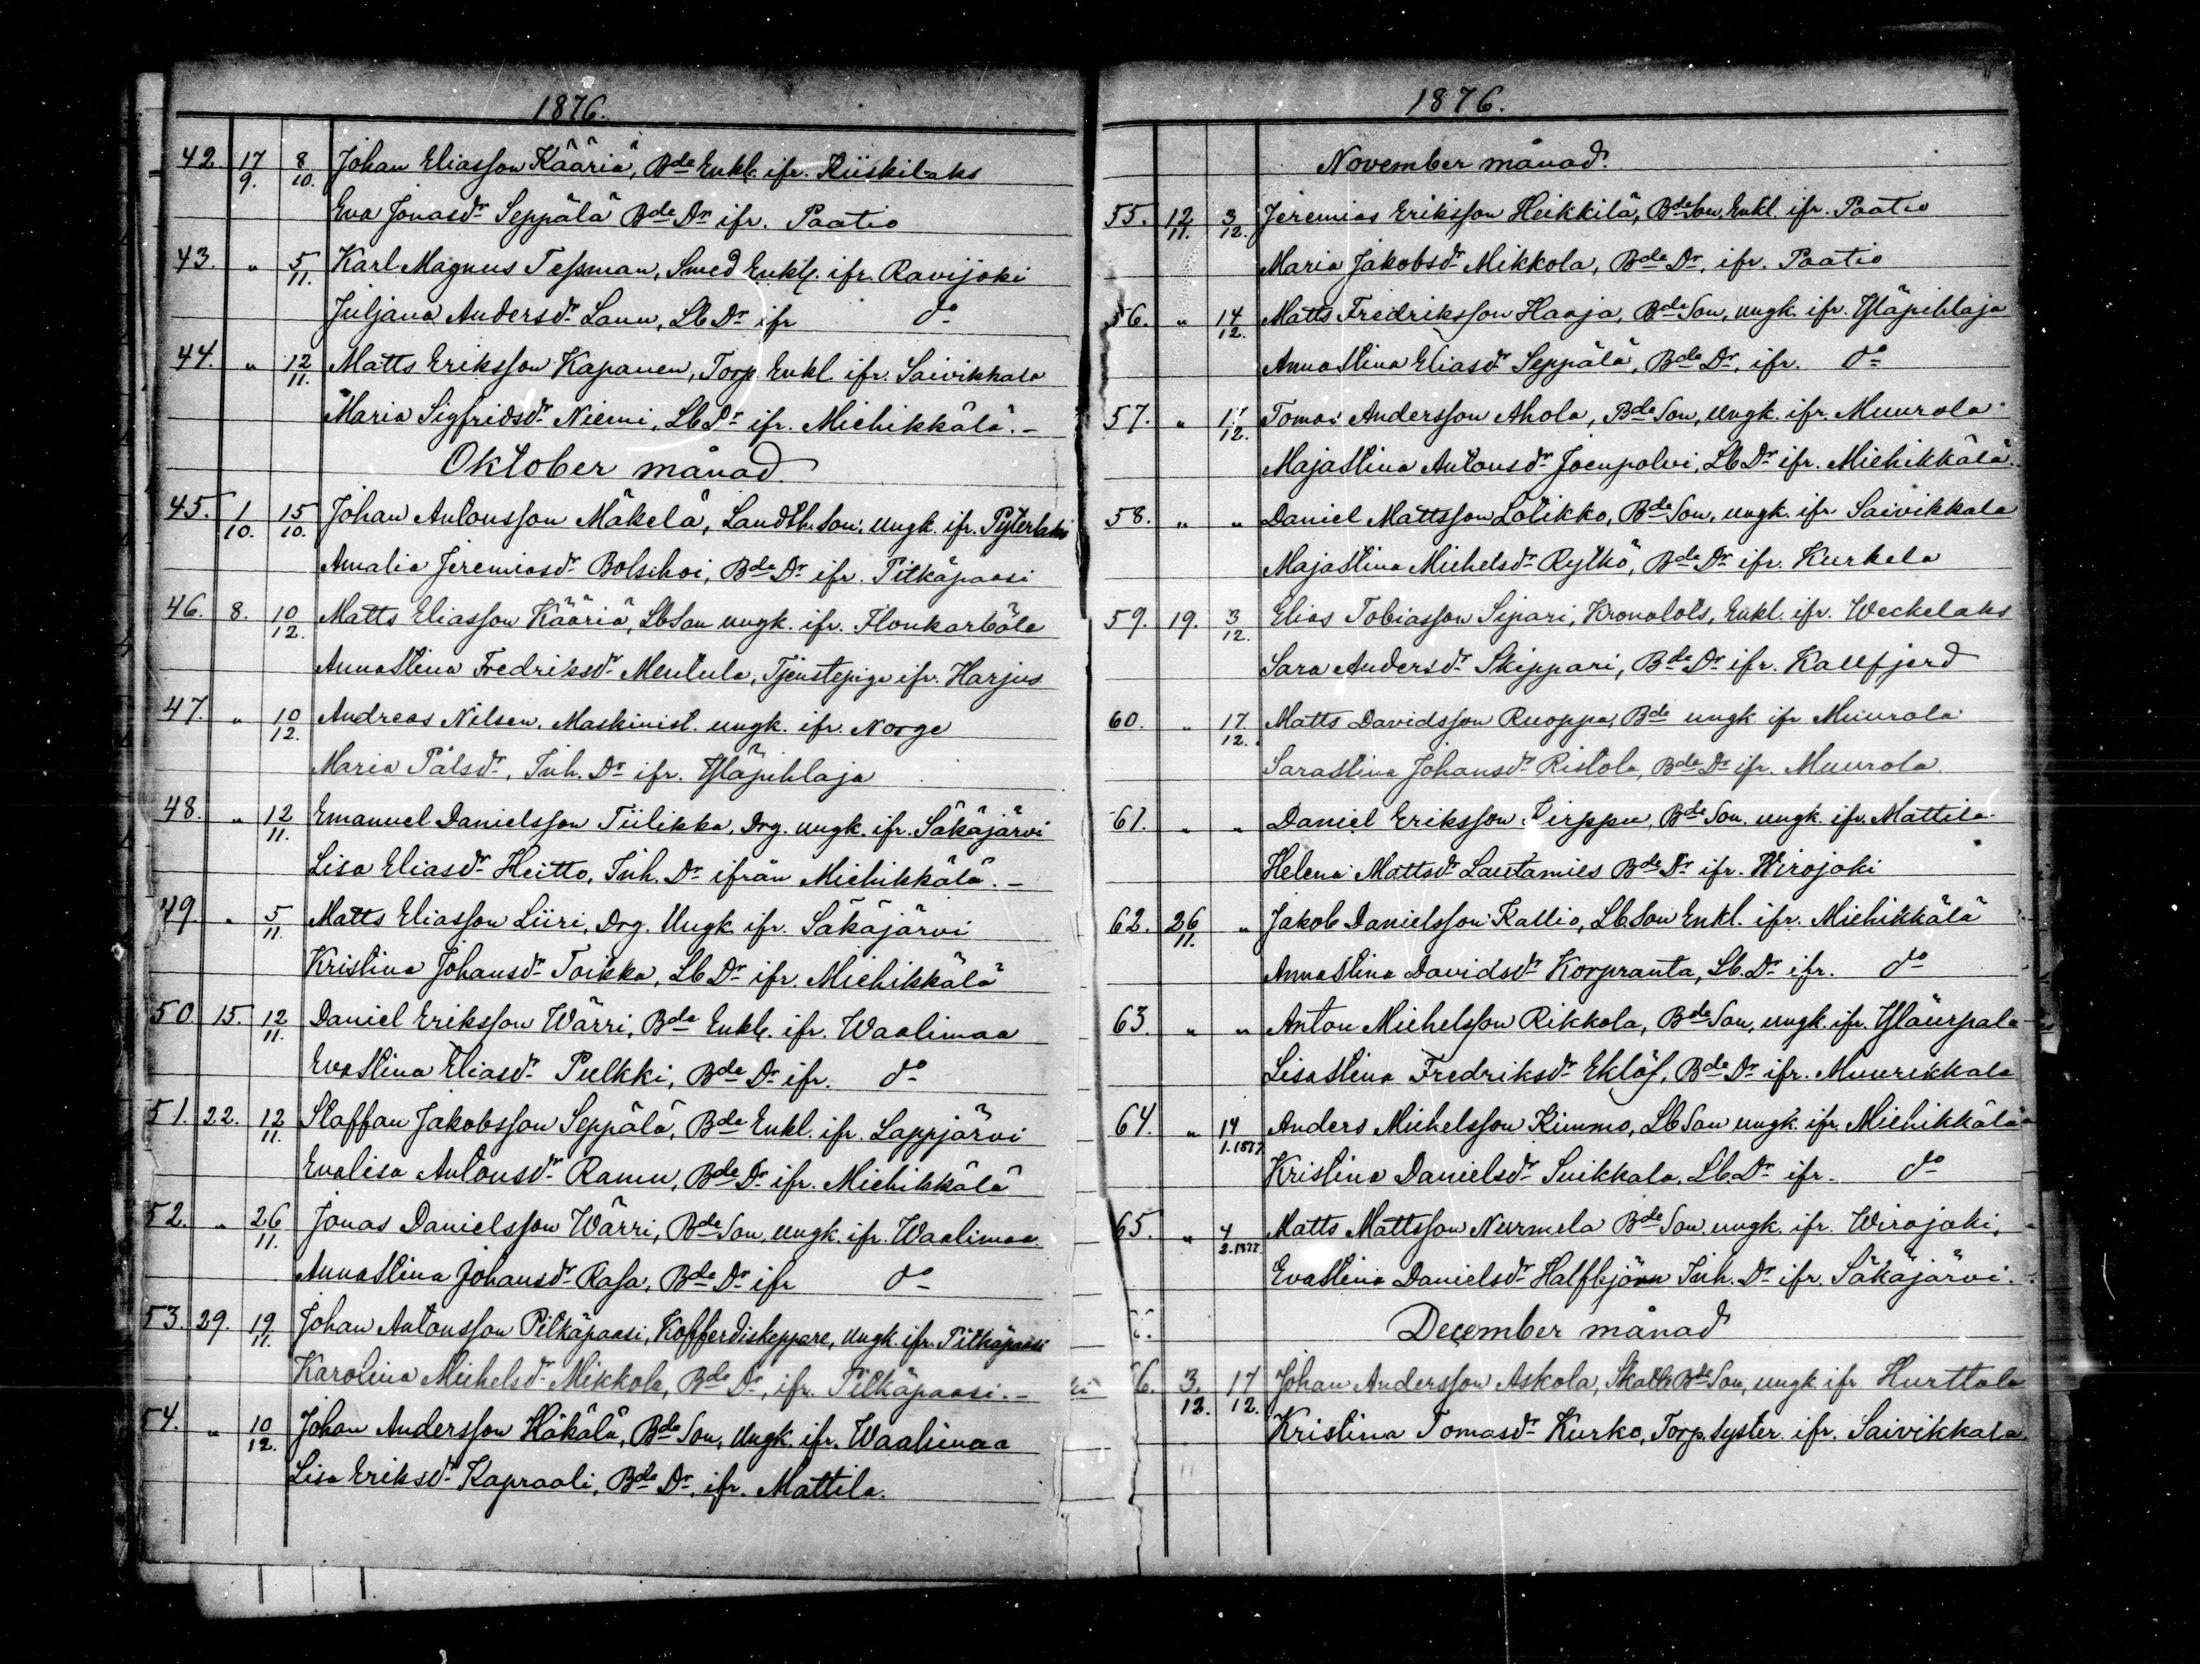 1876.
42. 17/9. 8/10. Johan Eliasson Kääriä, Bde Enkl. ifr. Kiiskilaks
Eva Jonasdr Seppälä Bde Dr ifr. Paatio
43. " 5/11. Karl Magnus Tessman, Smed Enkl. ifr. Ravijoki
Juljana Andersdr Lanu, Lb Dr ifr do
44. " 12/11. Matts Eriksson Kapanen, Torp. Enkl ifr. Saivikkala
Maria Sigfridsdr Niemi, Lb Dr ifr. Miehikkälä.-
Oktober månad.
45. 1/10. 15/10. Johan Antonsson Mäkelä, Landth. Son, ungk. ifr. Pyterlaks
Amalia Jeremiasdr Bolschoi, Bde Dr ifr. Pitkäpaasi
46. 8. 10/12. Matts Eliasson Kääriä, Lb Son ungk. ifr. Flonkarböle
Annastina Fredriksdr Mentula, Tjenstepiga ifr. Harjus
47. " 10/12. Andreas Nilsen, Maskinist. ungk. ifr. Norge
Maria Pålsdr, Inh. Dr ifr. Yläpihlaja
48. " 12/11. Emanuel Danielsson Tiilikka, Drg. ungk. ifr. Säkäjärvi
Lisa Eliasdr Heitto, Inh. Dr ifrån Miehikkälä.-
49 " 5/11. Matts Eliasson Liiri, Drg. Ungk ifr. Säkäjärvi
Kristina Johansdr Toikka, Lb Dr ifr. Miehikkälä
50. 15. 12/11. Daniel Eriksson Wärri, Bde Enkl. ifr. Waalimaa
Evastina Eliasdr Pulkki, Bde Dr ifr. do
51. 22. 12/11. Staffan Jakobsson Seppälä, Bde Enkl. ifr. Lappjärvi
Evalisa Antonsdr Ramu, Bde Dr ifr. Miehikkälä
52. " 26/11. Jonas Danielsson Wärri, Bde Son, ungk. ifr. Waalimaa.
Annastina Johansdr Rasa, Bde Dr ifr do
53. 29. 19/11. Johan Antonsson Pitkäpaasi, Kofferdiskeppare, ungk. ifr. Pitkäpaasi
Karolina Michelsdr Mikkola, Bde Dr, ifr. Pitkäpaasi.-
54. " 10/12. Johan Andersson Häkälä, Bde Son, Ungk. ifr. Waalimaa
Lisa Eriksdr Kapraali, Bde Dr, ifr. Mattila.
1876.
November månad.
55. 12/11. 3/12. Jeremias Eriksson Heikkilä, Bde Son, Enkl. ifr. Paatio
Maria Jakobsdr Mikkola, Bde Dr, ifr. Paatio
56. " 14/12. Matts Fredriksson Haaja, Bde Son, ungk. ifr. Yläpihlaja
Annastina Eliasdr Seppälä, Bde Dr, ifr. do
57. " 17/12. Tomas Andersson Ahola, Bde Son, Ungk. ifr. Muurola
Majastina Antonsdr Joenpolvi, Lb Dr ifr. Miehikkälä.
58. " " Daniel Mattsson Lötikkö, Bde Son, ungk. ifr Saivikkala
Majastina Michelsdr Rytkö, Bde Dr ifr. Kurkela
59. 19. 3/12. Elias Tobiasson Sipari, Kronolots, Enkl. ifr. Weckelaks
Sara Andersdr Skippari, Bde Dr ifr. Kallfjerd
60. " 17/12. Matts Davidsson Ruoppa, Bde ungk ifr Muurola
Sarastina Johansdr Ristola, Bde Dr ifr. Muurola.
61. " " Daniel Eriksson Kirppu, Bde Son. ungk. ifr. Mattila.
Helena Mattsdr Lautamies Bde Dr ifr. Wirojoki
62. 26/11. " Jakob Danielsson Kallio, Lb. Son Enkl. ifr. Miehikkälä
Annastina Davidsdr Korpranta, Lb. Dr ifr. do
63. " " Anton Michelsson Rikkola, Bde Son, ungk. ifr. Yläurpala
Lisastina Fredriksdr Eklöf, Bde Dr ifr. Muurikkala
64. " 14/1.1877 Anders Michelsson Kimmo, Lb Son ungk. ifr. Miehikkälä
Kristina Danielsdr Suikkala, Lb. Dr ifr. do
65. " 4/2.1877 Matts Mattsson Nurmela Bde Son. ungk. ifr. Wirojoki,
Evastina Danielsdr Halfbjörn Inh. Dr ifr. Säkäjärvi.
December månad
66. 3/12. 17/12. Johan Andersson Askola, Skatte Bde Son, ungk. ifr Hurttala
Kristina Tomasdr Kurko, Torp. syster ifr. Saivikkala.